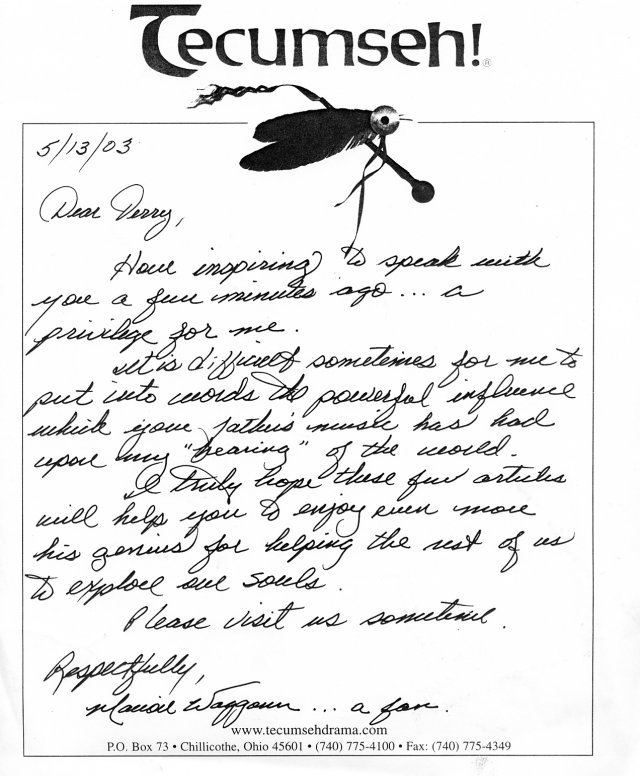 Tecumseh!®
5/13/03
Dear Jerry,
How inspiring to speak with
you a few minutes ago... a
privilege for me.
It is difficult sometimes for me to
put into words the powerful influence
which your father's music has had
upon my "hearing" of the world.
I truly hope these few articles
will help you to enjoy even more
his genius for helping the rest of us
to explore our souls.
Please visit us sometime.
Respectfully,
Marion Waggoner ... a fan.
www.tecumsehdrama.com
P.O. Box 73 • Chillicothe, Ohio 45601 • (740) 775-4100 • Fax: (740) 775-4349